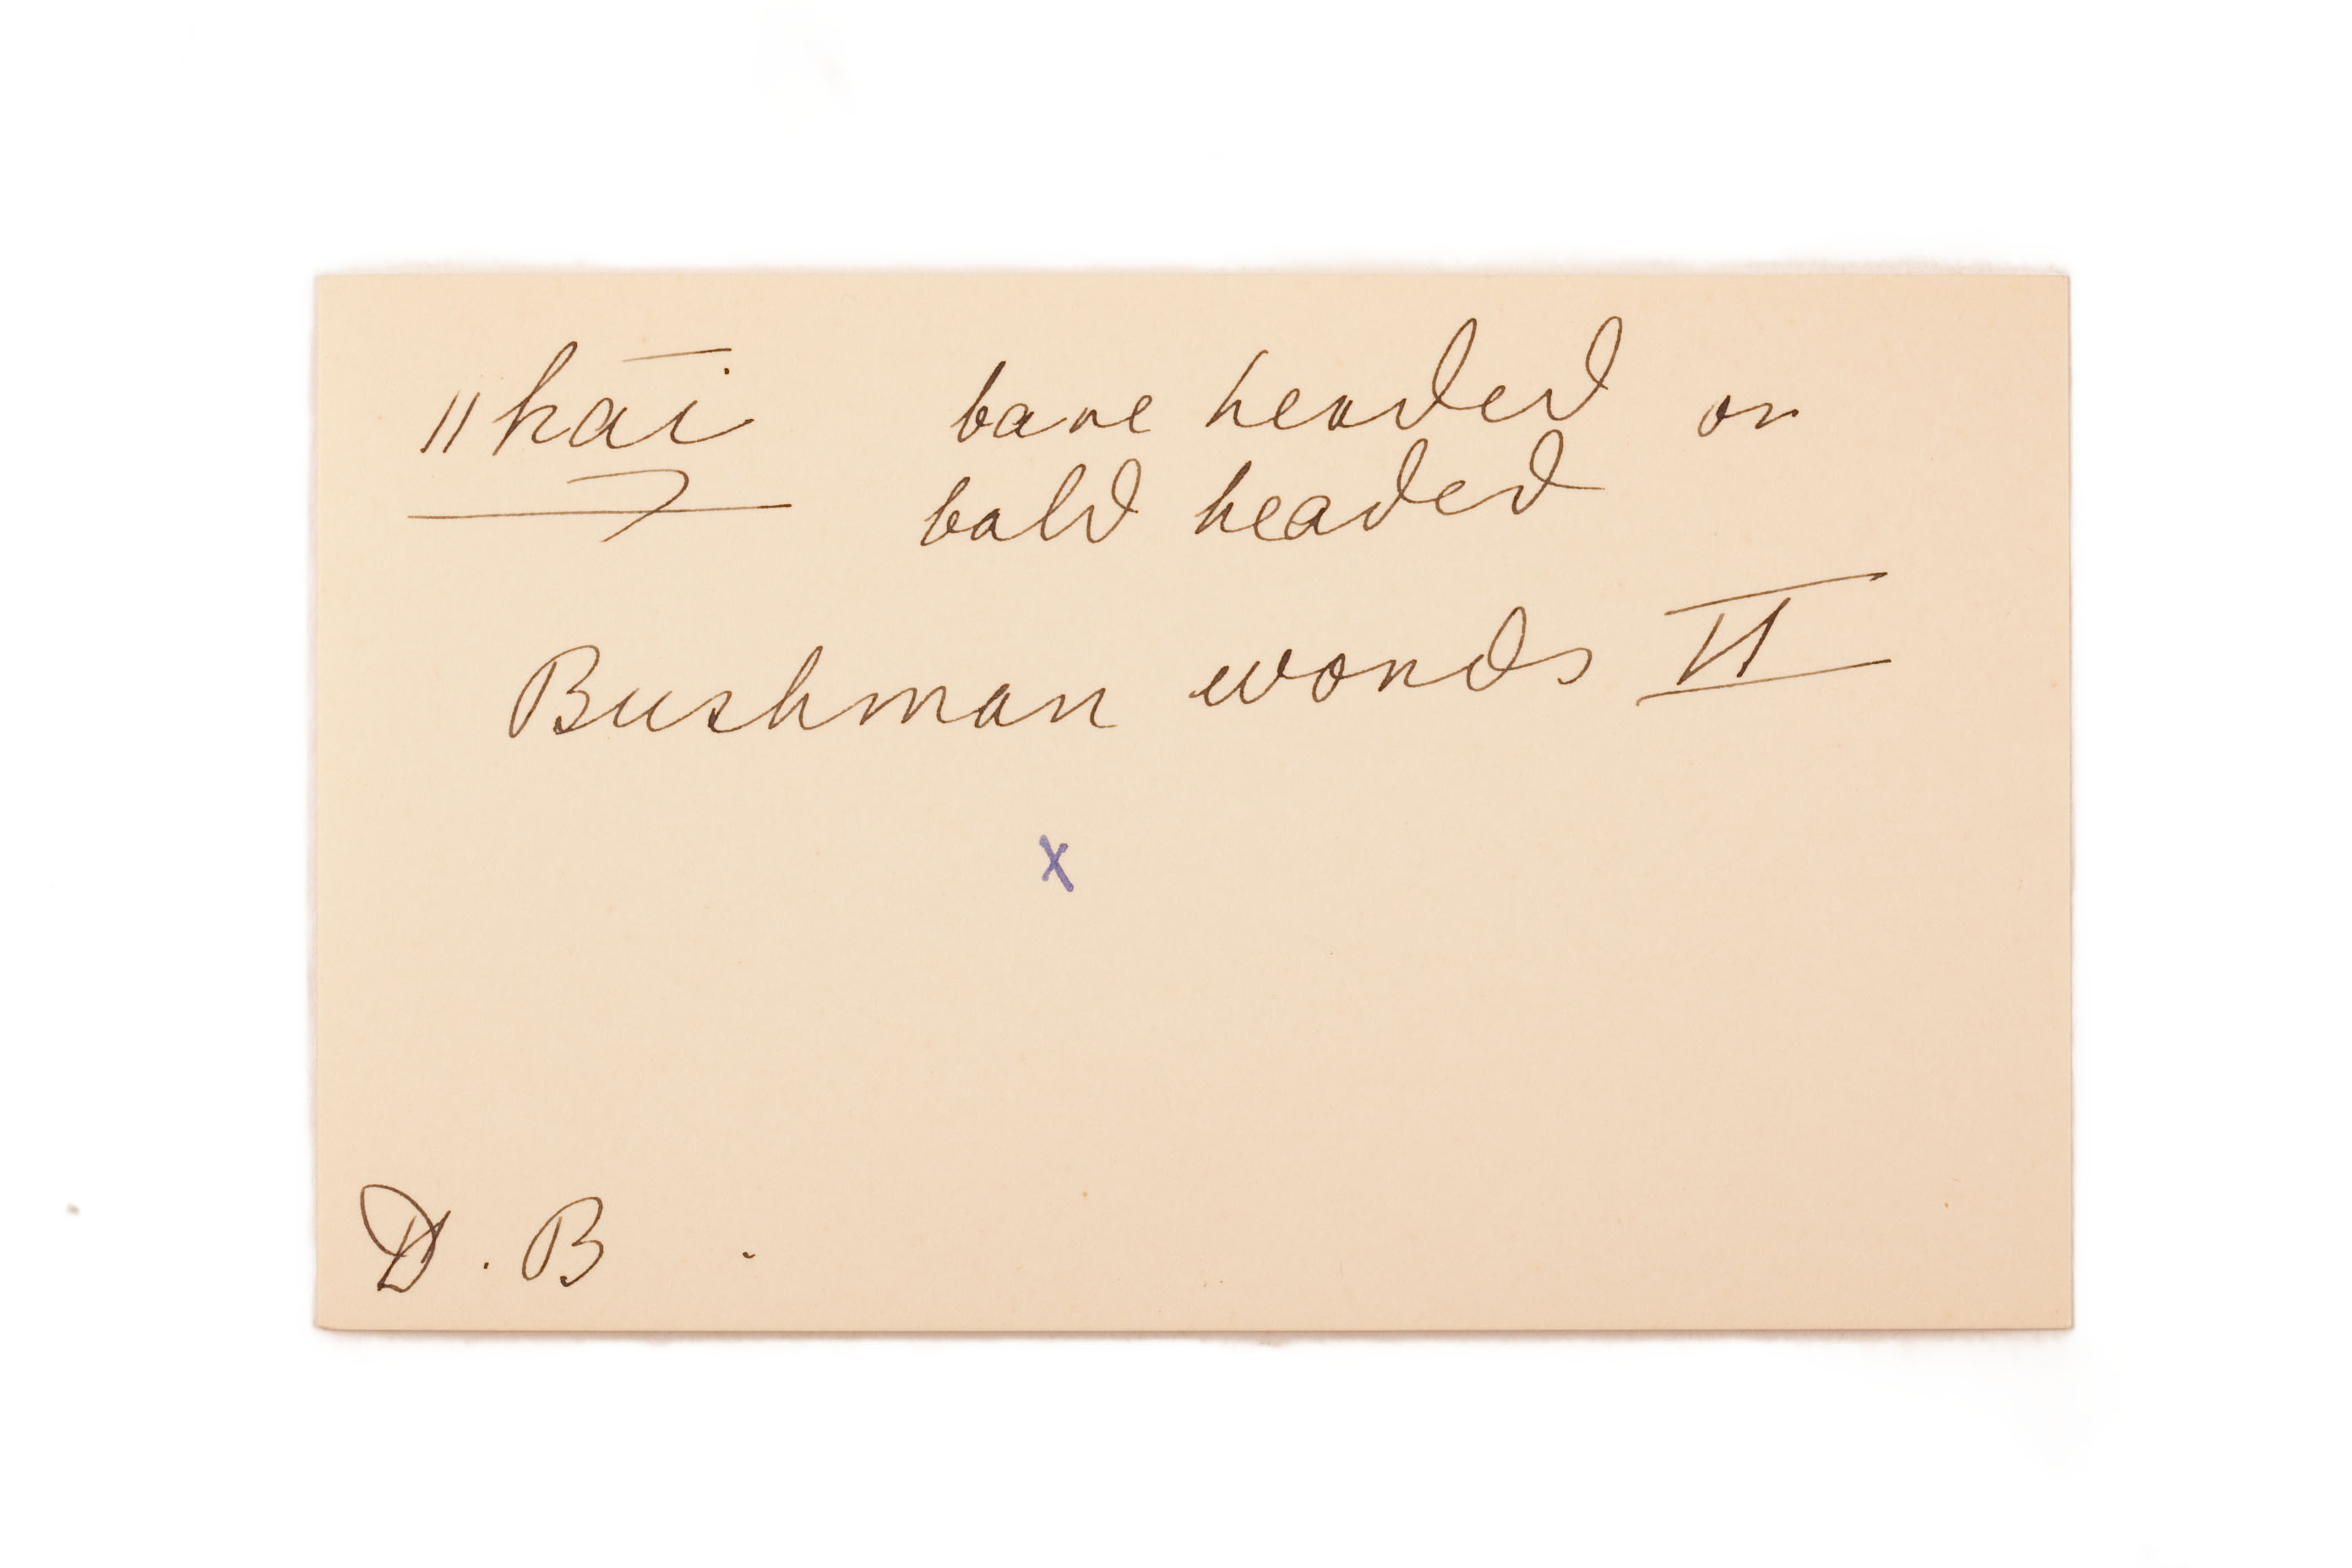 ǁkāi bare headed or
bald headed
Bushman words II
x
D. B.